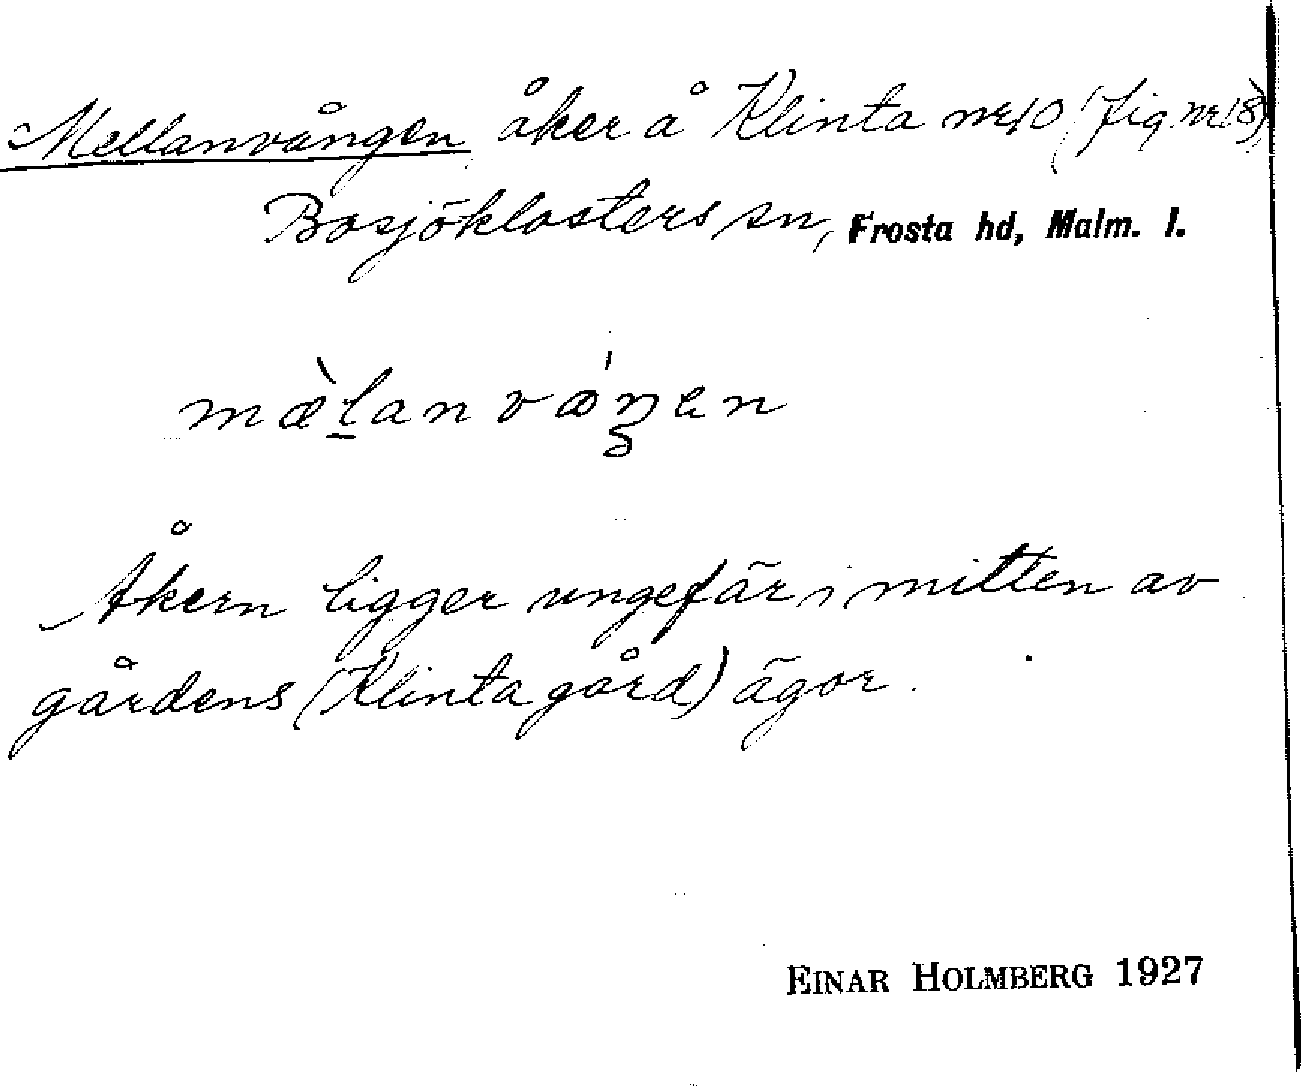 Mellanvången åker å Klinta nr 10 (fig. nr 18)
Bosjöklosters sn, Frosta hd, Malm. l.
mæ̀l̠an vǿŋen
Åkern ligger ungefär i mitten av
gårdens (Klinta gård) ägor.
EINAR HOLMBERG 1927